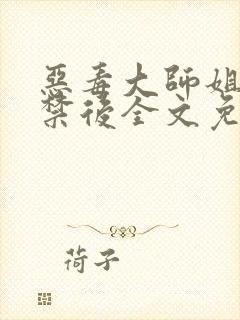 惡毒大師姐
禁後全文免
荷子